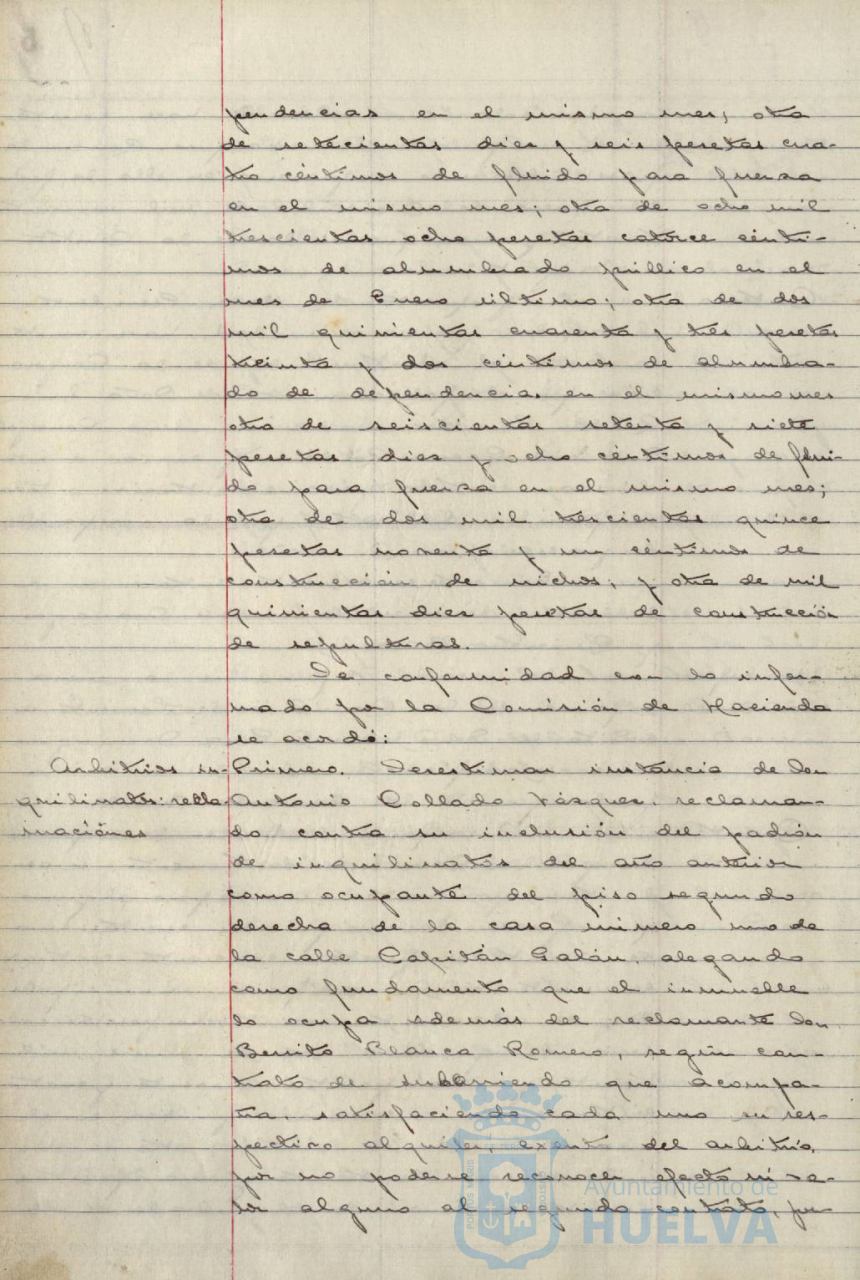 pendencias en el mismo mes; otra
de setecientas diez y seis pesetas cua-
tro céntimos de fluido para fuerza
en el mismo mes; otra de ocho mil
trescientas ocho pesetas catorce cénti-
mos de alumbrado público en el
mes de Enero último; otra de dos
mil quinientas cuarenta y tres pesetas
treinta y dos céntimos de alumbra-
do de dependencias en el mismo mes
otra de seiscientas setenta y siete
pesetas diez y ocho céntimos de flui-
do para fuerza en el mismo mes;
otra de dos mil trescientas quince
pesetas noventa y un céntimos de
construcción de nichos; y otra de mil
quinientas diez pesetas de construcción
de sepulturas.
De conformidad con lo infor-
mado por la Comisión de Hacienda
se acordó:
Arbitrios in-
quilinatos: recla-
maciones
Primero. Desestimar instancia de don
Antonio Collado Vázquez, reclaman-
do contra su inclusión del padrón
de inquilinatos del año anterior
como ocupante del piso segundo
derecha de la casa número uno de
la calle Capitán Galán, alegando
como fundamento que el inmueble
lo ocupa además del reclamante don
Benito Blanca Romero, según con-
trato de subarriendo que acompa-
ña, satisfaciendo cada uno su res-
pectivo alquiler, exento del arbitrio,
por no poderse reconocer efecto ni va-
lor alguno al segundo contrato, pu-
Ayuntamiento de
HUELVA